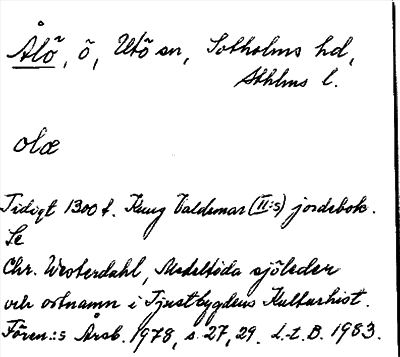 Ålö, ö, Utö sn, Sotholms hd,
Sthlms l.
olæ
Tidigt 1300 t. Kung Valdemar (II:s) jordebok.
Se
Chr. Westerdahl, Medeltida sjöleder
och ortnamn i Tjustbygdens Kulturhist.
Fören.:s Årsb. 1978, s. 27, 29. L.t.B. 1983.